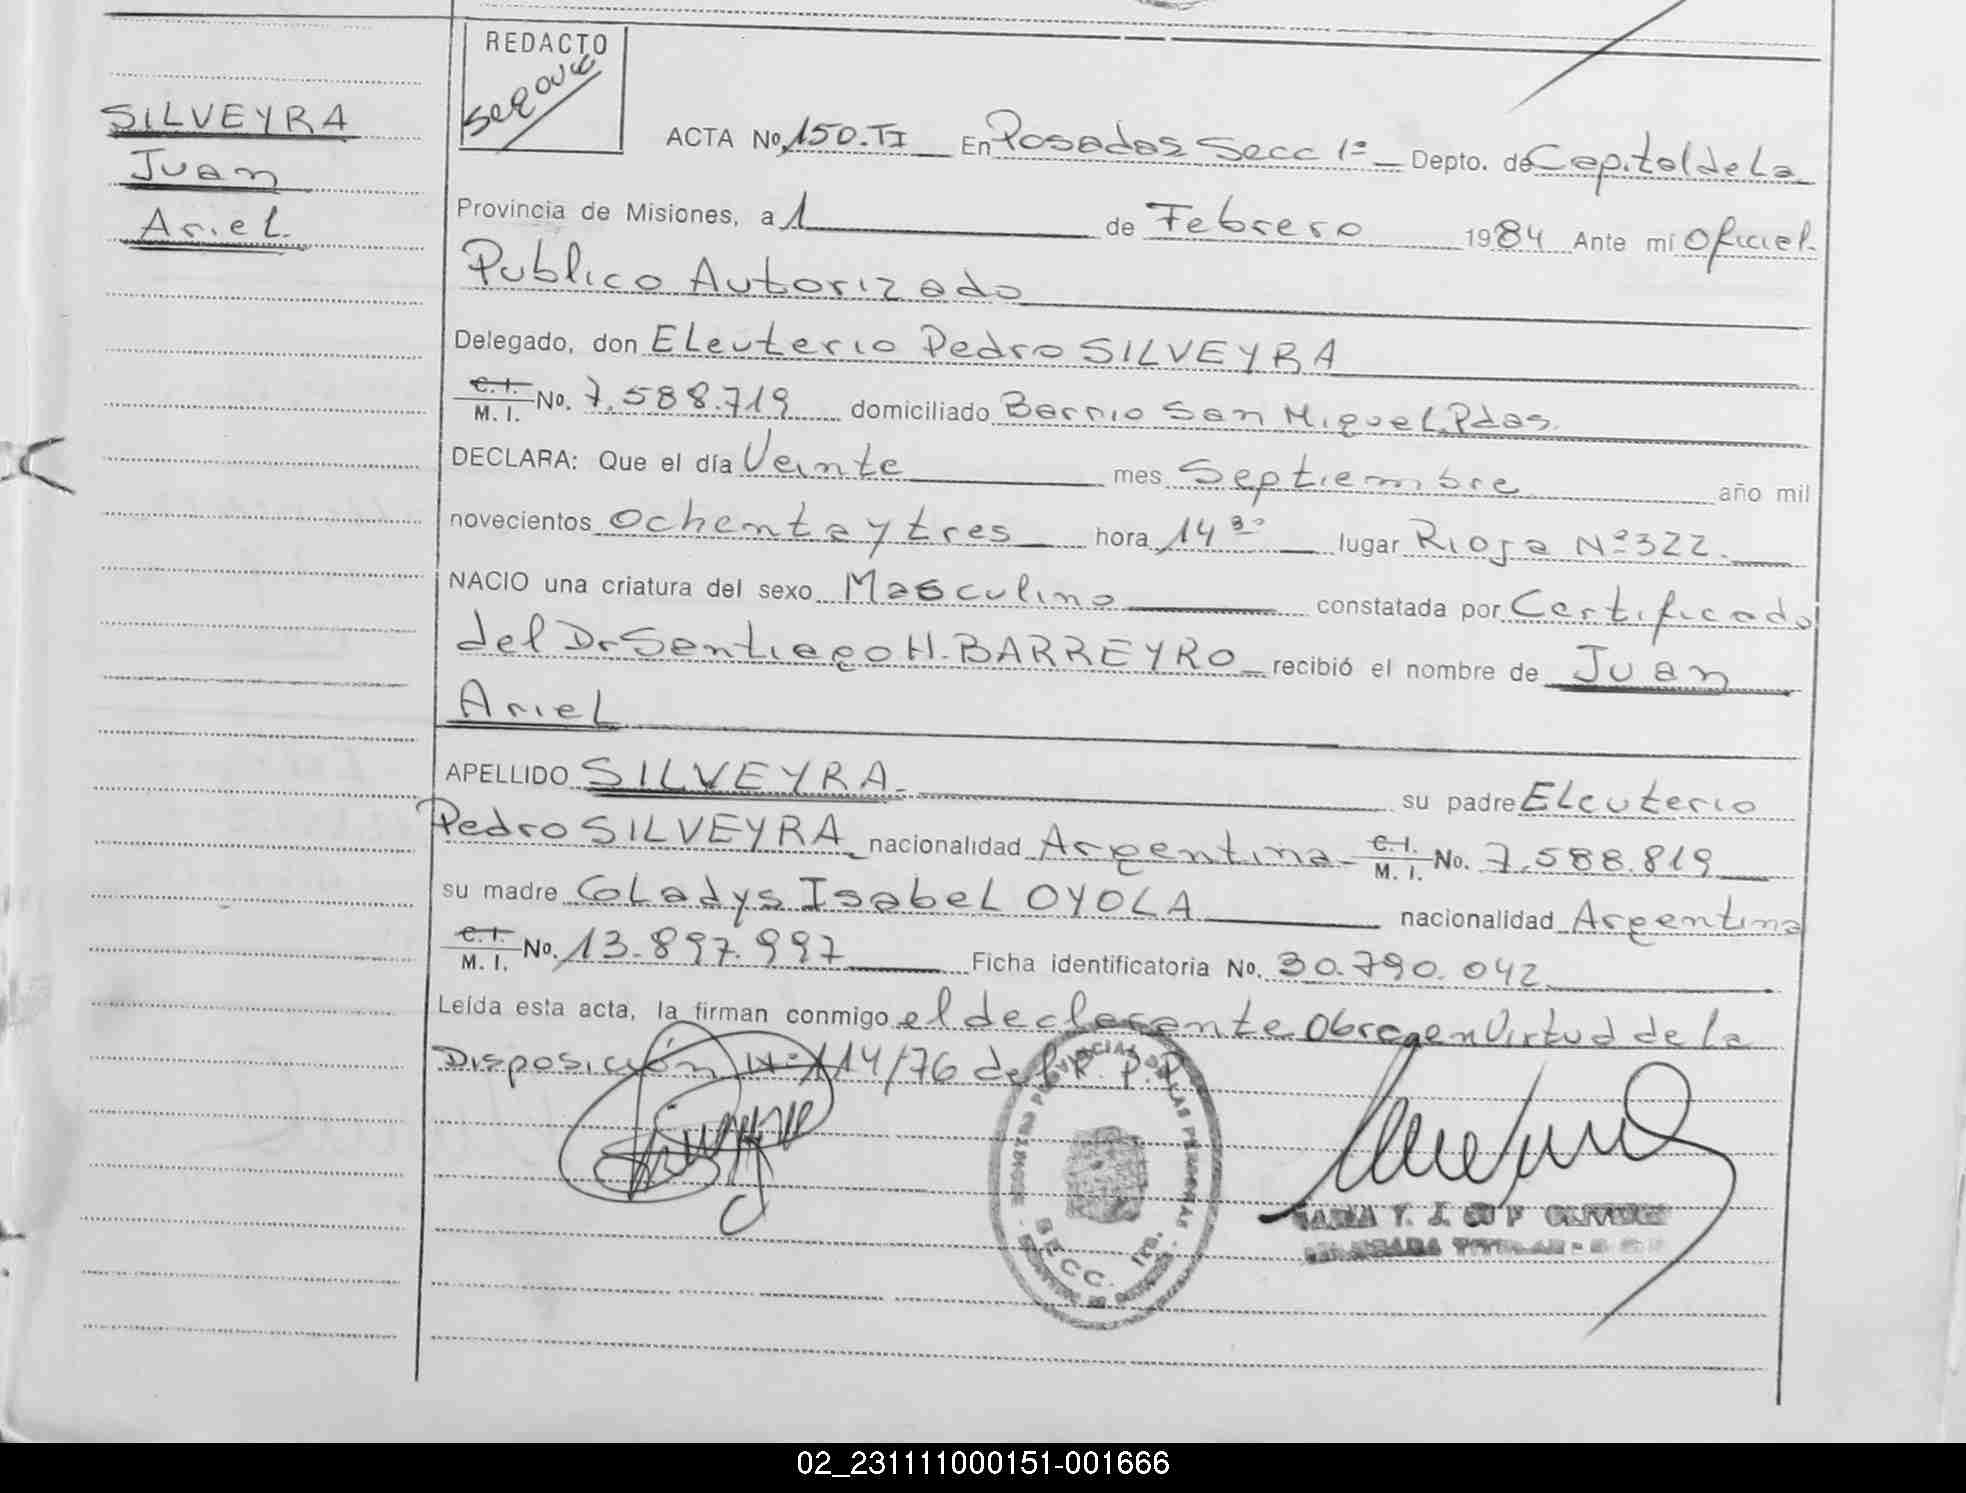 REDACTO
SILVEYRA
Juan
Ariel.
ACTA No. 150.TI En Posadas Secc 1ª Depto. de Capital de La
Provincia de Misiones, a 1 de Febrero 1984 Ante mí Oficial
Publico Autorizado
Delegado, don ELeuterio Pedro SILVEYRA
C. I. M. I. No. 7.588.719 domiciliado Barrio San MigueL Pdas.
DECLARA: Que el día Veinte mes Septiembre año mil
novecientos Ochenta y tres hora 14 30 lugar Rioja Nº 322.
NACIO una criatura del sexo Masculino constatada por Certificado
del Dr Santiago H. BARREYRO recibió el nombre de Juan
ArieL
APELLIDO SILVEYRA su padre ELeuterio
Pedro SILVEYRA nacionalidad Argentina C. I. M. I. No. 7.588.819
su madre GLadys IsabeL OYOLA nacionalidad Argentina
C. I. M. I. No. 13.897.997 Ficha identificatoria No. 30.790.042
Leída esta acta, la firman conmigo el declarante Obra en Virtud de La
Disposición Nº 114/76 del R. P. P.
SECC. 1RA.
02_231111000151-001666